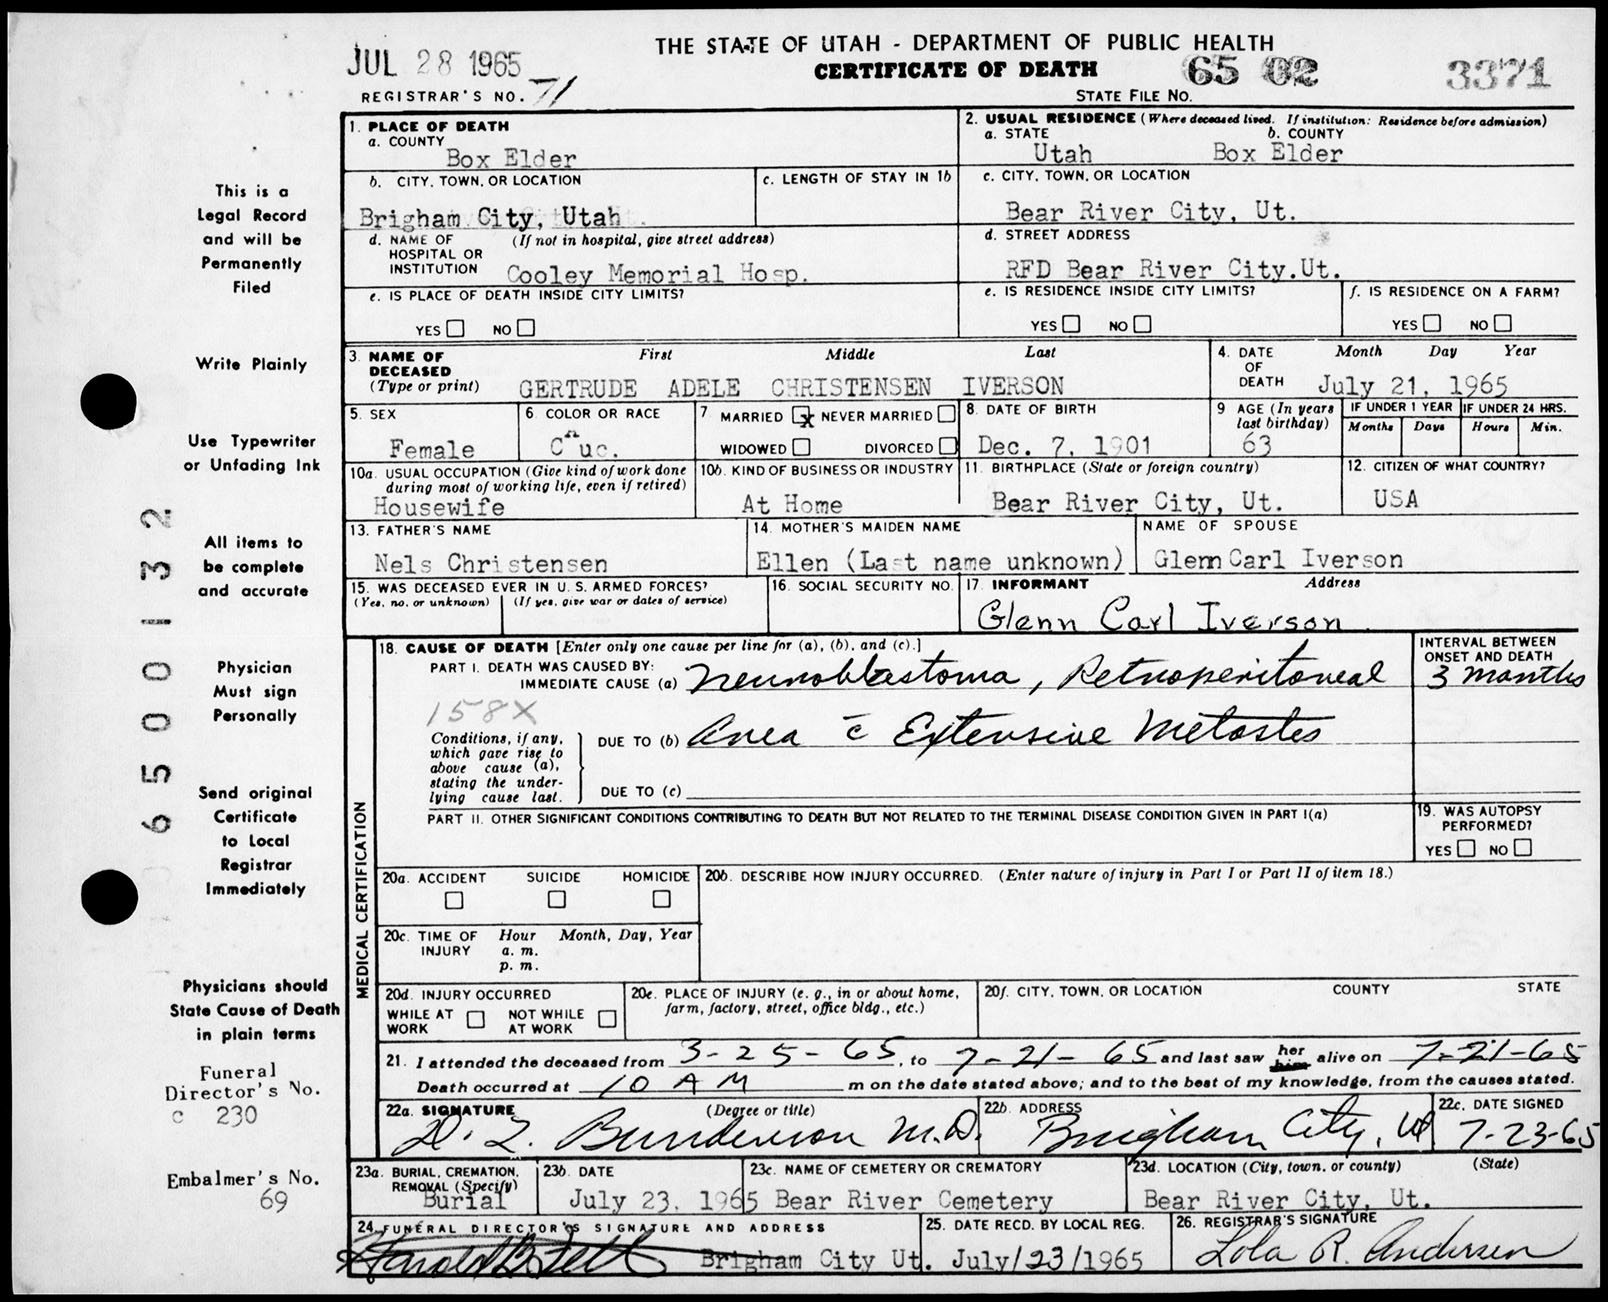 THE STATE OF UTAH - DEPARTMENT OF PUBLIC HEALTH
CERTIFICATE OF DEATH
JUL 28 1965
REGISTRAR'S NO. 71
STATE FILE NO. 65 02 3371
This is a
Legal Record
and will be
Permanently
Filed
Write Plainly
Use Typewriter
or Unfading Ink
All items to
be complete
and accurate
Physician
Must sign
Personally
Send original
Certificate
to Local
Registrar
Immediately
Physicians should
State Cause of Death
in plain terms
Funeral
Director's No.
c 230
Embalmer's No.
69
65 00 132
1. PLACE OF DEATH
a. COUNTY
Box Elder
2. USUAL RESIDENCE (Where deceased lived. If institution: Residence before admission)
a. STATE b. COUNTY
Utah Box Elder
b. CITY, TOWN, OR LOCATION
Brigham City, Utah
c. LENGTH OF STAY IN 1b
c. CITY, TOWN, OR LOCATION
Bear River City, Ut.
d. NAME OF HOSPITAL OR INSTITUTION (If not in hospital, give street address)
Cooley Memorial Hosp.
d. STREET ADDRESS
RFD Bear River City.Ut.
e. IS PLACE OF DEATH INSIDE CITY LIMITS?
YES NO
e. IS RESIDENCE INSIDE CITY LIMITS?
YES NO
f. IS RESIDENCE ON A FARM?
YES NO
3. NAME OF DECEASED (Type or print) First Middle Last
GERTRUDE ADELE CHRISTENSEN IVERSON
4. DATE OF DEATH Month Day Year
July 21, 1965
5. SEX
Female
6. COLOR OR RACE
Cauc.
7 MARRIED x NEVER MARRIED
WIDOWED DIVORCED
8. DATE OF BIRTH
Dec. 7, 1901
9 AGE (In years last birthday)
63
IF UNDER 1 YEAR IF UNDER 24 HRS.
Months Days Hours Min.
10a. USUAL OCCUPATION (Give kind of work done during most of working life, even if retired)
Housewife
10b. KIND OF BUSINESS OR INDUSTRY
At Home
11. BIRTHPLACE (State or foreign country)
Bear River City, Ut.
12. CITIZEN OF WHAT COUNTRY?
USA
13. FATHER'S NAME
Nels Christensen
14. MOTHER'S MAIDEN NAME
Ellen (Last name unknown)
NAME OF SPOUSE
Glenn Carl Iverson
15. WAS DECEASED EVER IN U. S. ARMED FORCES?
(Yes, no, or unknown) (If yes, give war or dates of service)
16. SOCIAL SECURITY NO.
17. INFORMANT Address
Glenn Carl Iverson
MEDICAL CERTIFICATION
18. CAUSE OF DEATH [Enter only one cause per line for (a), (b), and (c).]
PART I. DEATH WAS CAUSED BY:
IMMEDIATE CAUSE (a) neuroblastoma, Retroperitoneal
INTERVAL BETWEEN ONSET AND DEATH
3 months
158X
Conditions, if any, which gave rise to above cause (a), stating the underlying cause last.
DUE TO (b) area c̄ Extensive Metastes
DUE TO (c)
PART II. OTHER SIGNIFICANT CONDITIONS CONTRIBUTING TO DEATH BUT NOT RELATED TO THE TERMINAL DISEASE CONDITION GIVEN IN PART I(a)
19. WAS AUTOPSY PERFORMED?
YES NO
20a. ACCIDENT SUICIDE HOMICIDE
20b. DESCRIBE HOW INJURY OCCURRED. (Enter nature of injury in Part I or Part II of item 18.)
20c. TIME OF INJURY Hour Month, Day, Year
a. m.
p. m.
20d. INJURY OCCURRED
WHILE AT WORK NOT WHILE AT WORK
20e. PLACE OF INJURY (e. g., in or about home, farm, factory, street, office bldg., etc.)
20f. CITY, TOWN, OR LOCATION COUNTY STATE
21. I attended the deceased from 3-25-65, to 7-21-65 and last saw her him alive on 7-21-65
Death occurred at 10 AM m on the date stated above; and to the best of my knowledge, from the causes stated.
22a. SIGNATURE (Degree or title)
Bunderson M.D.
22b. ADDRESS
Brigham City, Ut
22c. DATE SIGNED
7-23-65
23a. BURIAL, CREMATION, REMOVAL (Specify)
Burial
23b. DATE
July 23, 1965
23c. NAME OF CEMETERY OR CREMATORY
Bear River Cemetery
23d. LOCATION (City, town, or county) (State)
Bear River City, Ut.
24. FUNERAL DIRECTOR'S SIGNATURE AND ADDRESS
Harold B Felt Brigham City Ut.
25. DATE RECD. BY LOCAL REG.
July/23/1965
26. REGISTRAR'S SIGNATURE
Lola R. Andersen